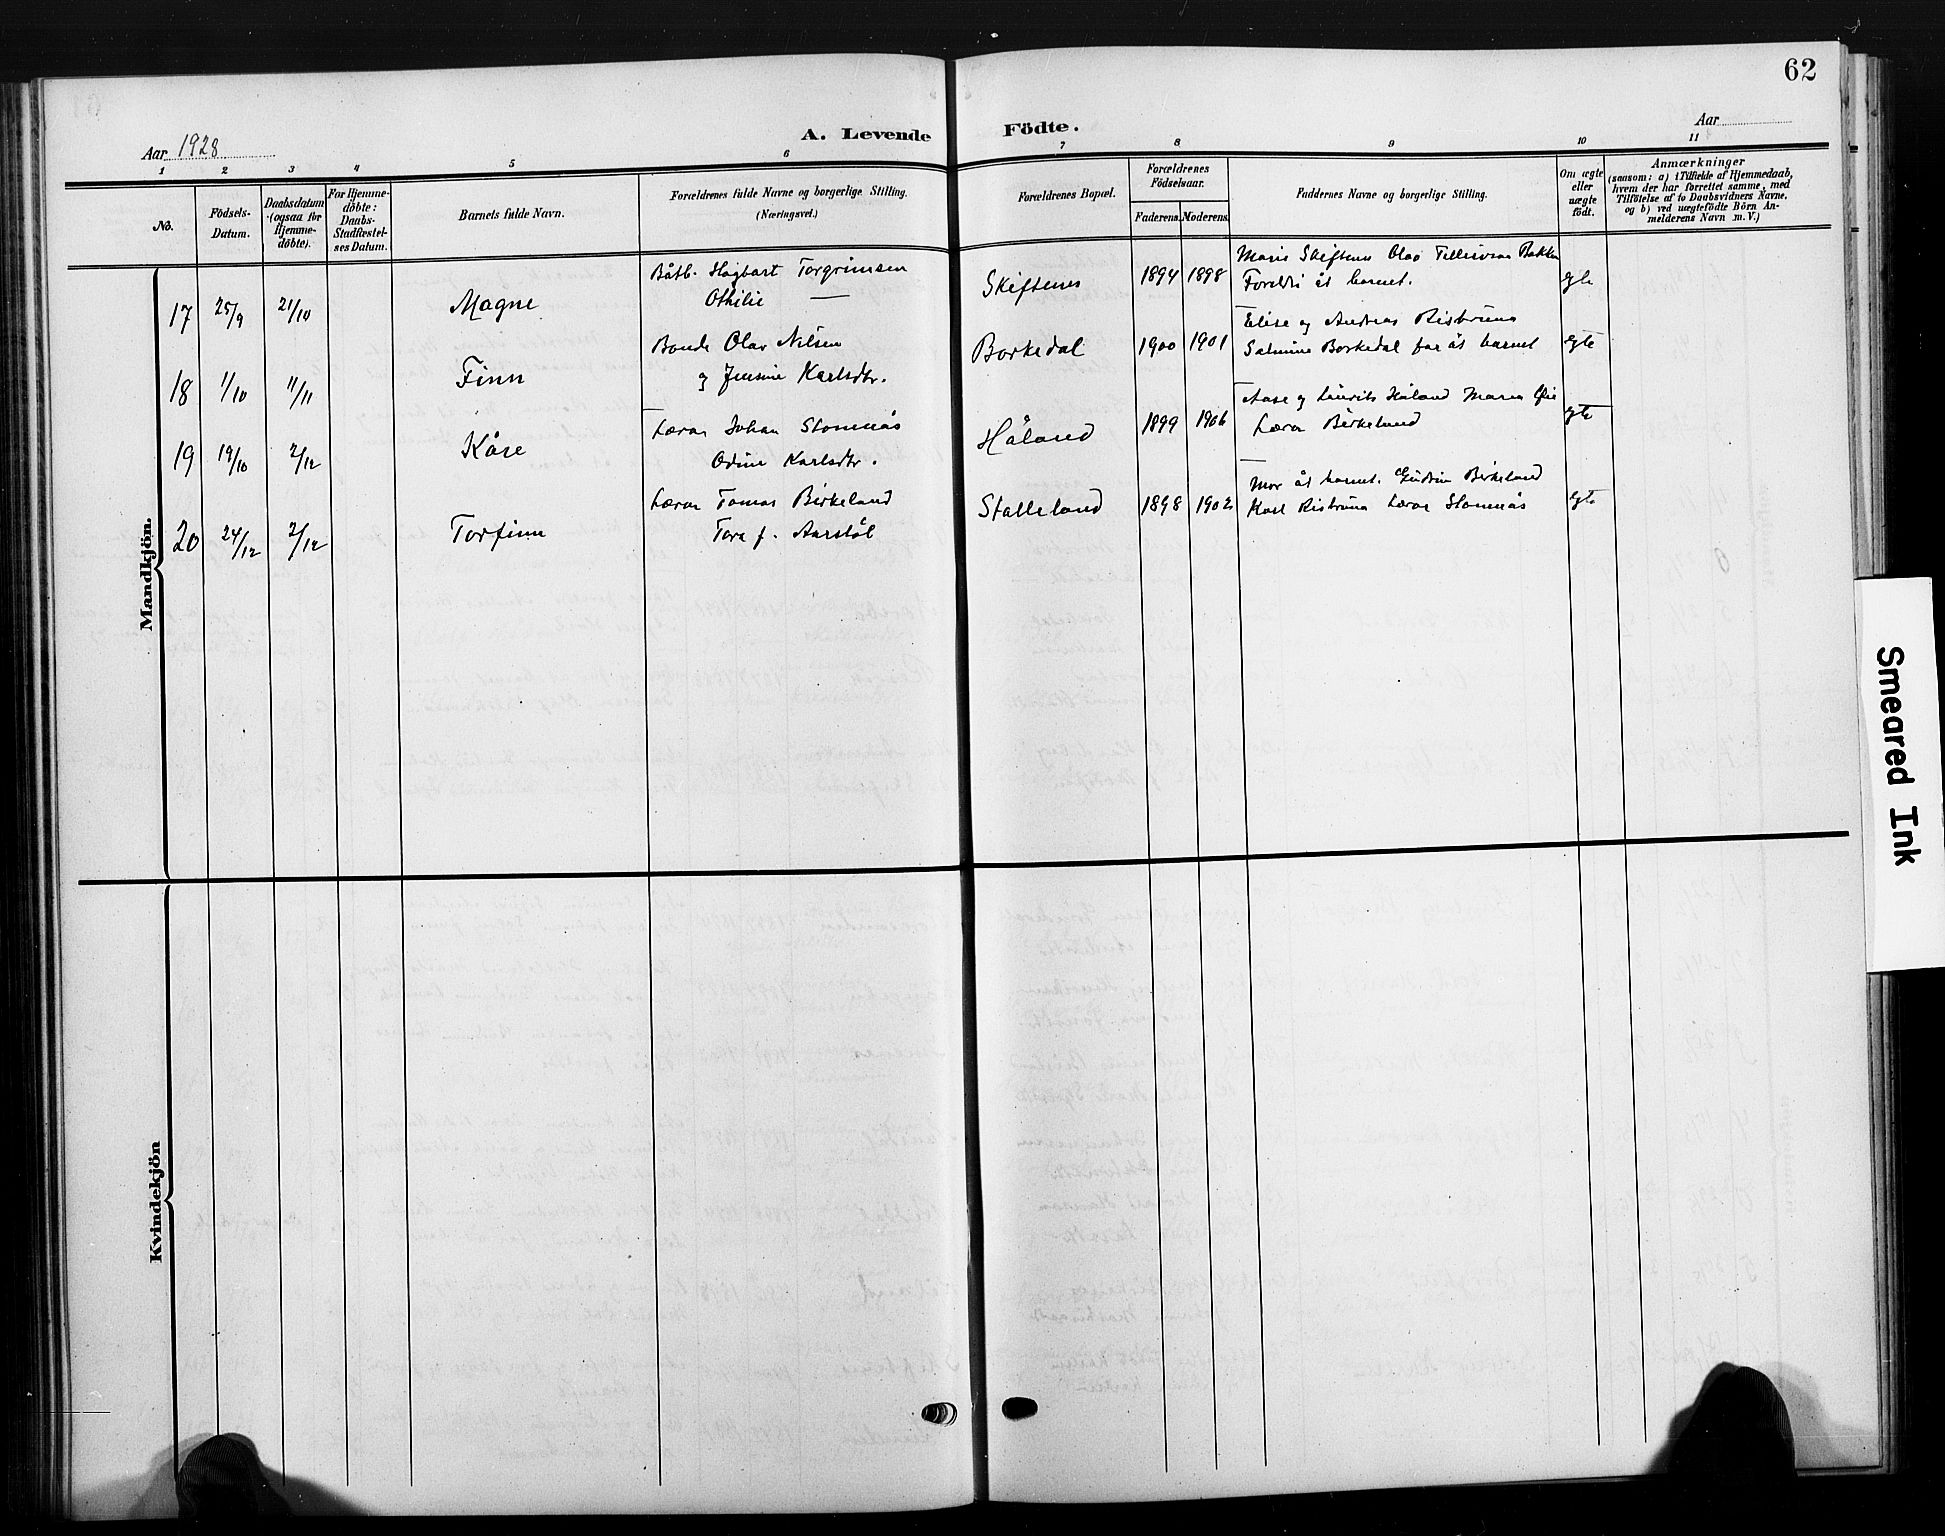 62
Aar 1928
A. Levende Födte.
Aar
1 2 3 4 5 6 7 8 9 10 11
No.
Födsels-
Datum.
Daabsdatum
(ogsaa for
Hjemme-
döbte).
For Hjemme-
döbte:
Daabs-
Stadfæstel-
ses Datum.
Barnets fulde Navn.
Forældrenes fulde Navne og borgerlige Stilling.
(Næringsvei.)
Forældrenes Bopæl.
Forældrenes
Födselsaar.
Faderens. Moderens.
Faddernes Navne og borgerlige Stilling.
Om ægte
eller
uægte
födt.
Anmærkninger
(saasom: a) i Tilfælde af Hjemmedaab,
hvem der har forrettet samme, med
Tilföielse af to Daabsvidners Navne,
og b) ved uægtefödte Börn An-
melderens Navn m. V.)
Mandkjön.
17 25/9 21/10 Magne
Båtb. Hagbart Torgrimsen
Othilie —
Skiftenes 1894 1898
Marie Skiftenes Olav Tellevsen Bakken
Foreldri åt barnet.
egte
18 1/10 11/11 Finn
Bonde Olav Nilsen
og Jensine Karlsdtr.
Borkedal 1900 1901
Elise og Andreas Risbruna
Salmine Borkedal far åt barnet
egte
19 19/10 2/12 Kåre
Lærar Johan Stomnås
Odine Karlsdtr.
Håland 1899 1906
Aase og Lauvits Håland Maria Øie
Lærar Birkeland
egte
20 24/12 2/12 Torfinn
Lærar Tomas Birkeland
Tora f. Aarstøl
Stalleland 1898 1902
Mor åt barnet. Gudrun Birkeland
Karl Risbruna Lærar Stomnås
egte
Kvindekjön
Smeared Ink